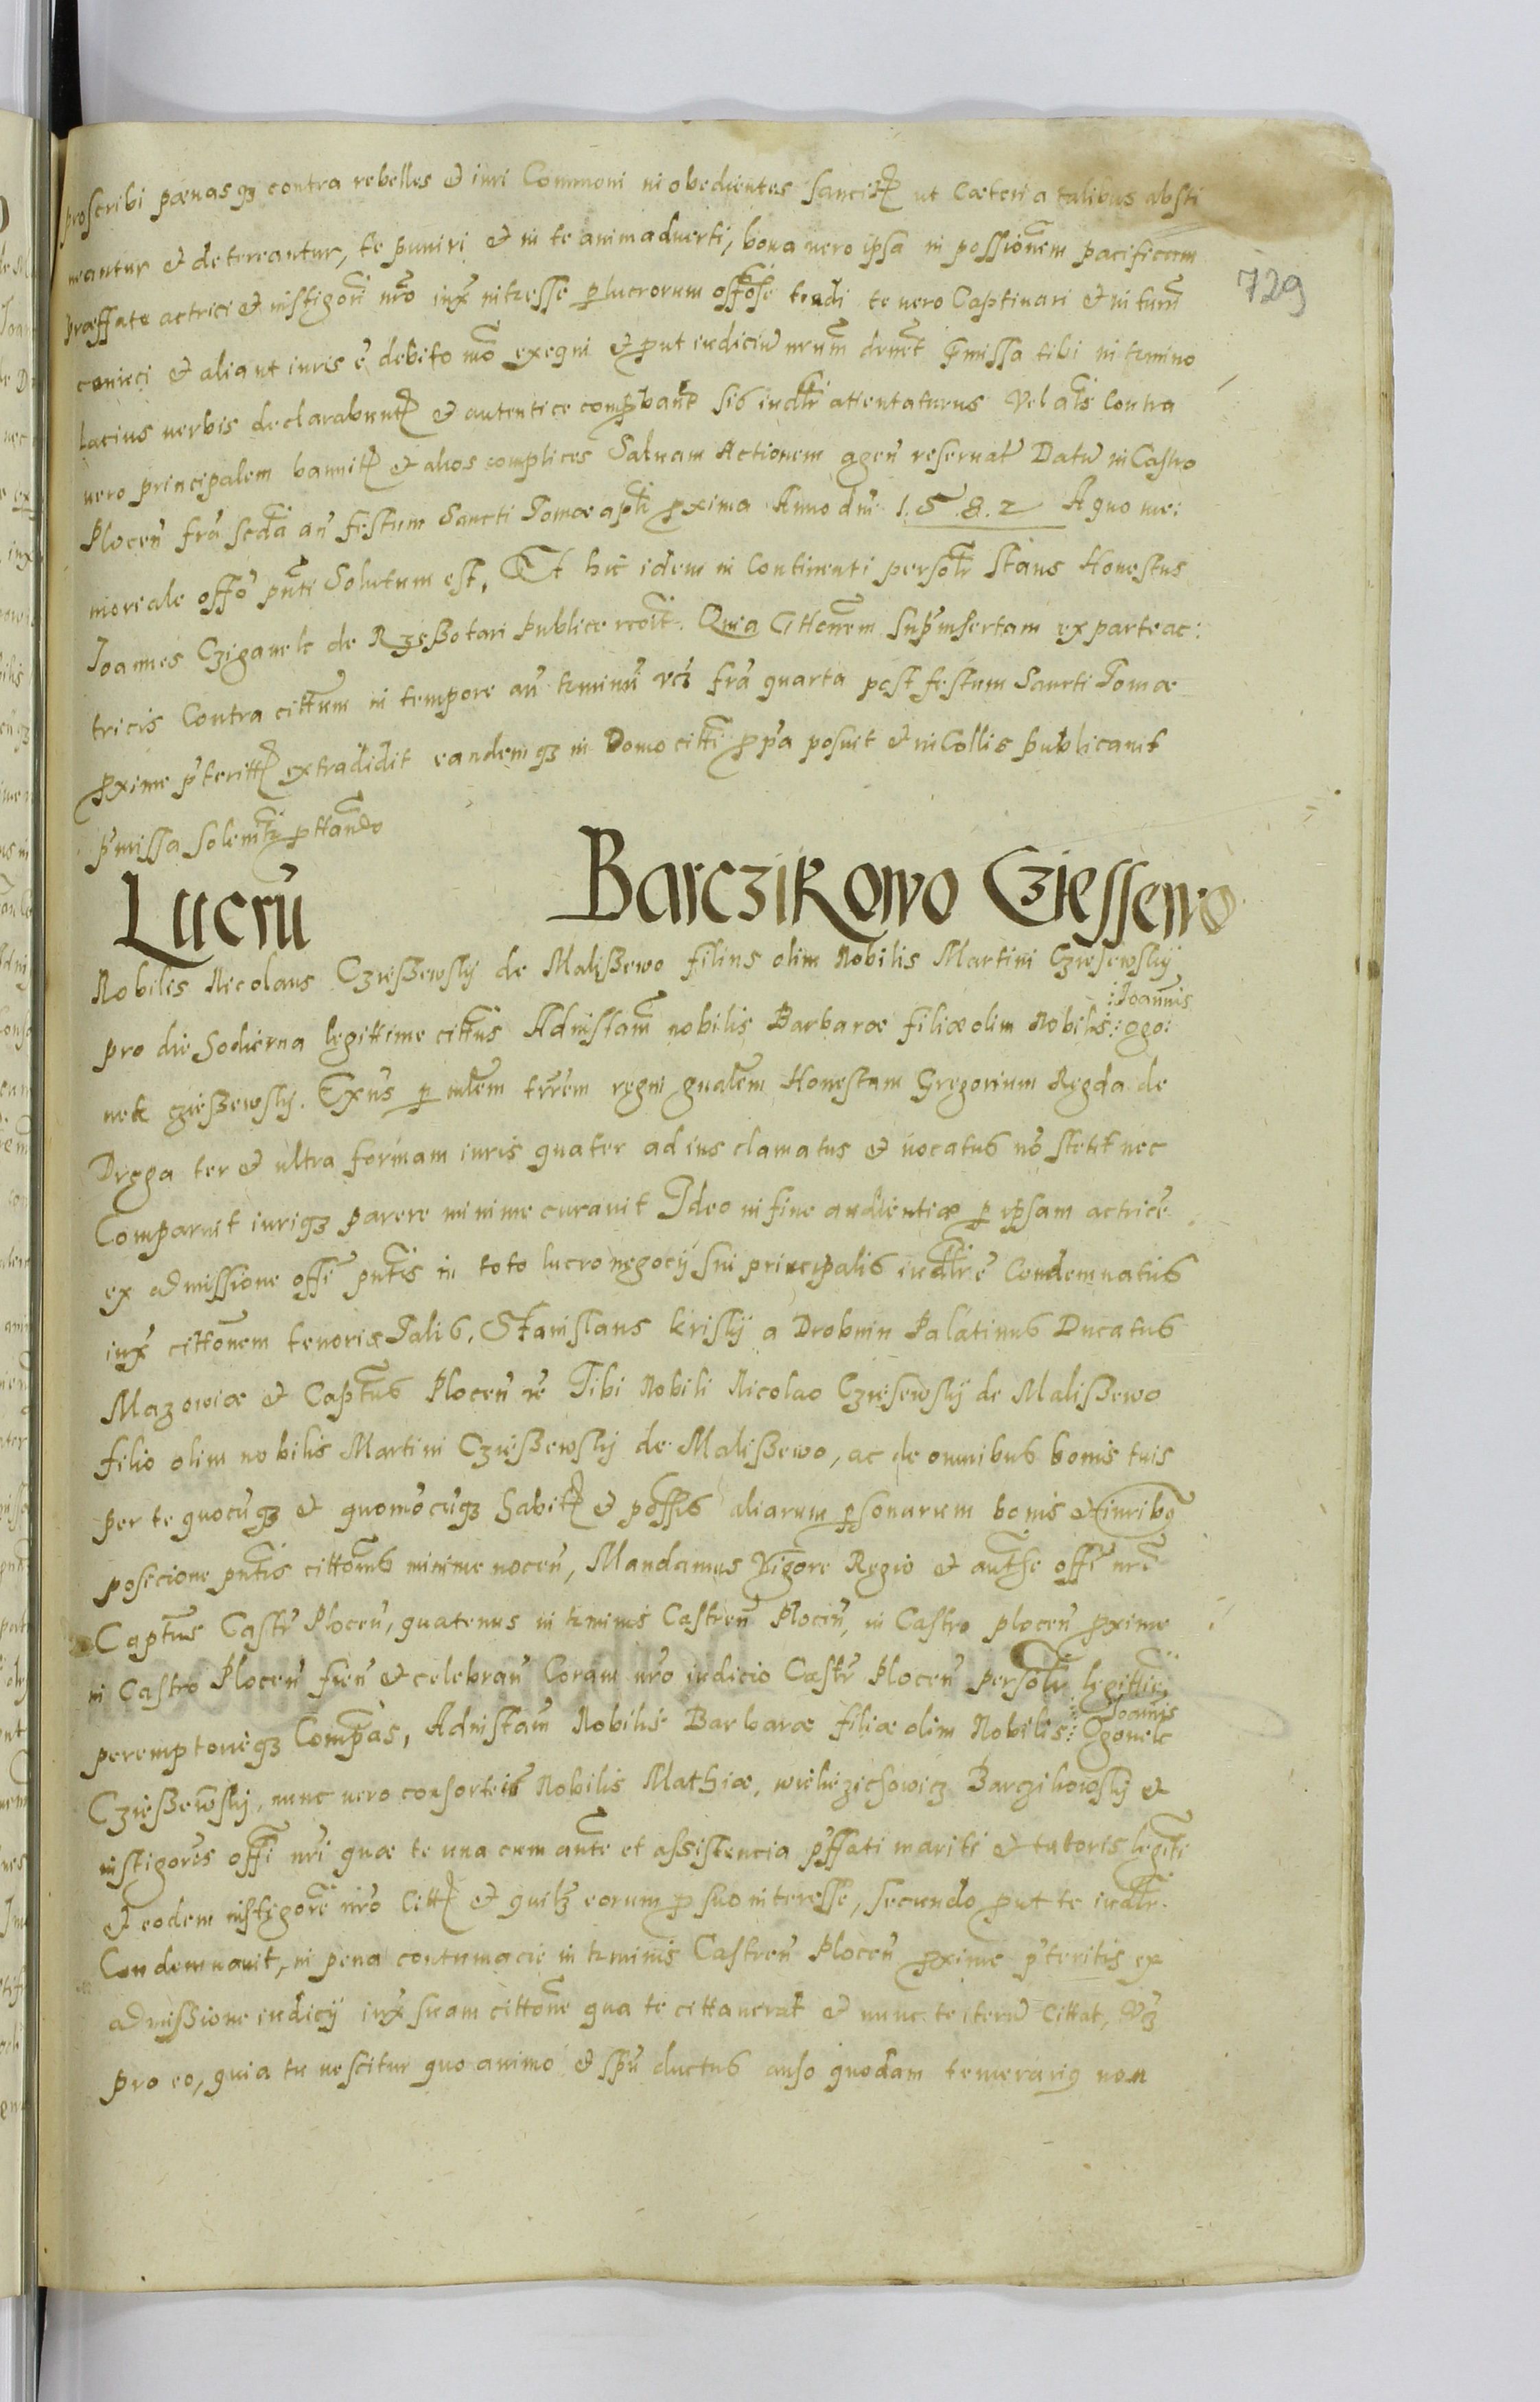 proscribi pœnasqȝ contra rebelles et iuri Commoni inobedientes sancitꝭ ut Cæteri a talibus absti
neantur et detereantur, te puniri et in te animaduerti, bona uero ipsa in possionem pacificam
præffate actrici et instigori nro iux intresse p lucrorum offose tradi te uero Captiuari et in turim
conieci et aliaut iuris e debito mo exequi et put iudiciu nrum decret pmissa tibi in tmino
lacius uerbis declarabuntꝭ et autentice compbant sis iudlr attentaturus Vel als Contra
uero principalem bannitꝭ et alios complices Saluam Actionem agen reseruat Datu in Castro
Plocen fra scda an festum Sancti Tomæ apli pxima Anno dni 1.5.8.2 A quo me:
moreale offo pnti Solutum est, Et hic idem in Continenti persolr stans Honestus
Joannes Cziganek de Rzeßotari publice recoit. Quia Cittonem supinsertam ex parte ac:
tricis Contra cittum in tempore an tminu rei fra quarta post festum Sancti Tomæ
pxime pteritꝭ extradidit eandemqȝ in Domo citti ppa posuit et in Collis publicauit
pmissa solenitr pttando
Lucru Barczikowo Cziessewo
Nobilis Nicolaus Czießewsky de Malißewo filius olim Nobilis Martini Cziesewsky
pro die hodierna legittime cittus Ad instam nobilis Barbaræ filiæ olim Nobilis :Joannis: Ogo:
nek czießewsky. Exus p mlem trrem regni gnalem Honestum Gregorium Regda de
Dręga ter et ultra formam iuris quater ad ius clamatus et uocatus no stetit nec
Comparuit iuriqȝ parere minime curauit Ideo in fine audientiæ p ipsam actrice
ex admissione offi pntis in toto lucro negocy sui principalis iudlr e Condemnatus
iux cittonem tenoris Talis, Stanislaus krisky a Drobnin Palatinus Ducatus
Mazowiæ et Captus Plocen ϰ Tibi Nobili Nicolao Cziesewsky de Malißewo
filio olim nobilis Martini Czießewsky de Malißewo, ac de omnibus bonis tuis
per te quocuqȝ et quomocuqȝ habitꝭ et possis aliarum psonarum bonis et iuribꝫ
posicione pntis cittonis minime nocen, Mandamus Vigore Regio et authe offi nri
Captus Castr Plocen, quatenus in tminis Castren Plocen, in Castro plocen pxime
in Castro Plocen fien et celebran Coram nro iudicio Castr Plocen persolr legittie
peremptorieqȝ Compas, Ad instam Nobilis Barbaræ filiæ olim Nobilis: Joannis Ogonek
Czießewsky, nunc uero consortis Nobilis Mathiæ, wielußichowicz Barczikowsky et
instigoris offi nri quæ te una cum aute et assistencia pffati mariti et tutoris legitti
et eodem instigore nro Cittꝭ et quilꝫ eorum p suo interesse, secundo put te iudlr
Condemnauit, in pena contumacie in tminis Castren Plocen pxime pteritis ex
admissione iudicy iux suam cittone qua te cittauerat et nunc te iteru Cittat, Vꝫ
pro eo, quia tu nescitur quo animo et spu ductus auso quodam temerario non
729